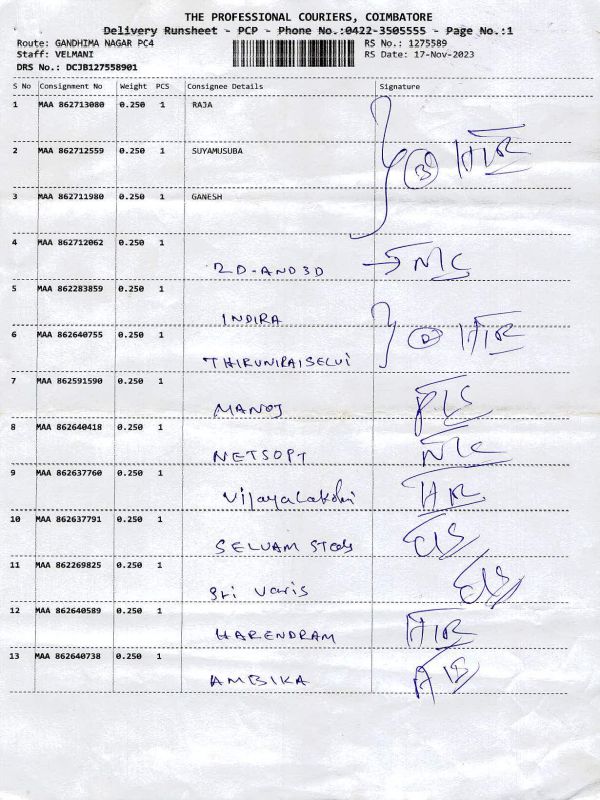 THE PROFESSIONAL COURIERS, COIMBATORE
Delivery Runsheet - PCP - Phone No.:0422-3505555 - Page No.:1
Route: GANDHIMA NAGAR PC4 RS No.: 1275589
Staff: VELMANI RS Date: 17-Nov-2023
DRS No.: DCJB127558901
S No Consignment No Weight PCS Consignee Details Signature
1 MAA 862713080 0.250 1 RAJA
2 MAA 862712559 0.250 1 SUYAMUSUBA
3 MAA 862711980 0.250 1 GANESH
4 MAA 862712062 0.250 1
2D-AND3D
5 MAA 862283859 0.250 1
INDIRA
6 MAA 862640755 0.250 1
THIRUNIRAISELVI
7 MAA 862591590 0.250 1
MANOJ
8 MAA 862640418 0.250 1
NETSOPT
9 MAA 862637760 0.250 1
10 MAA 862637791 0.250 1
SELVAM
11 MAA 862269825 0.250 1
Sri Varis
12 MAA 862640589 0.250 1
HARENDRAM
13 MAA 862640738 0.250 1
AMBIKA